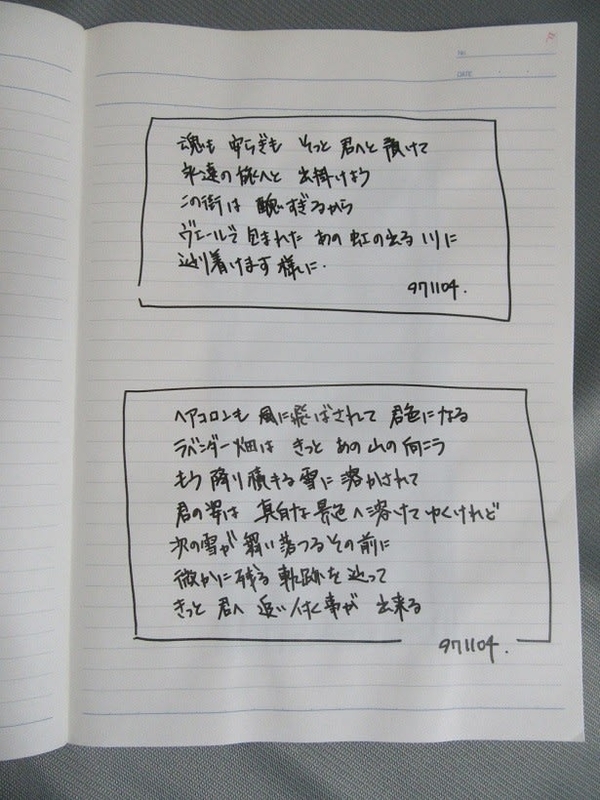 No.
DATE
魂も 安らぎも そっと 君へと 預けて
永遠の旅へと 出掛けよう
この街は 醜いすぎるから
ヴェールで 包まれた あの 虹の出る 川に
辿り着けます 様に.
971104.
ヘアコロンも 風に飛ばされて 君色になる
ラベンダー畑は きっと あの 山の 向こう
もう 降り積もる 雪に 溶かされて
君の姿は 真白な 景色へ 溶けて ゆくけれど
次の雪が 舞い落つる その前に
微かに 残る 軌跡を 辿って
きっと 君へ 追い付く事が 出来る
971104.